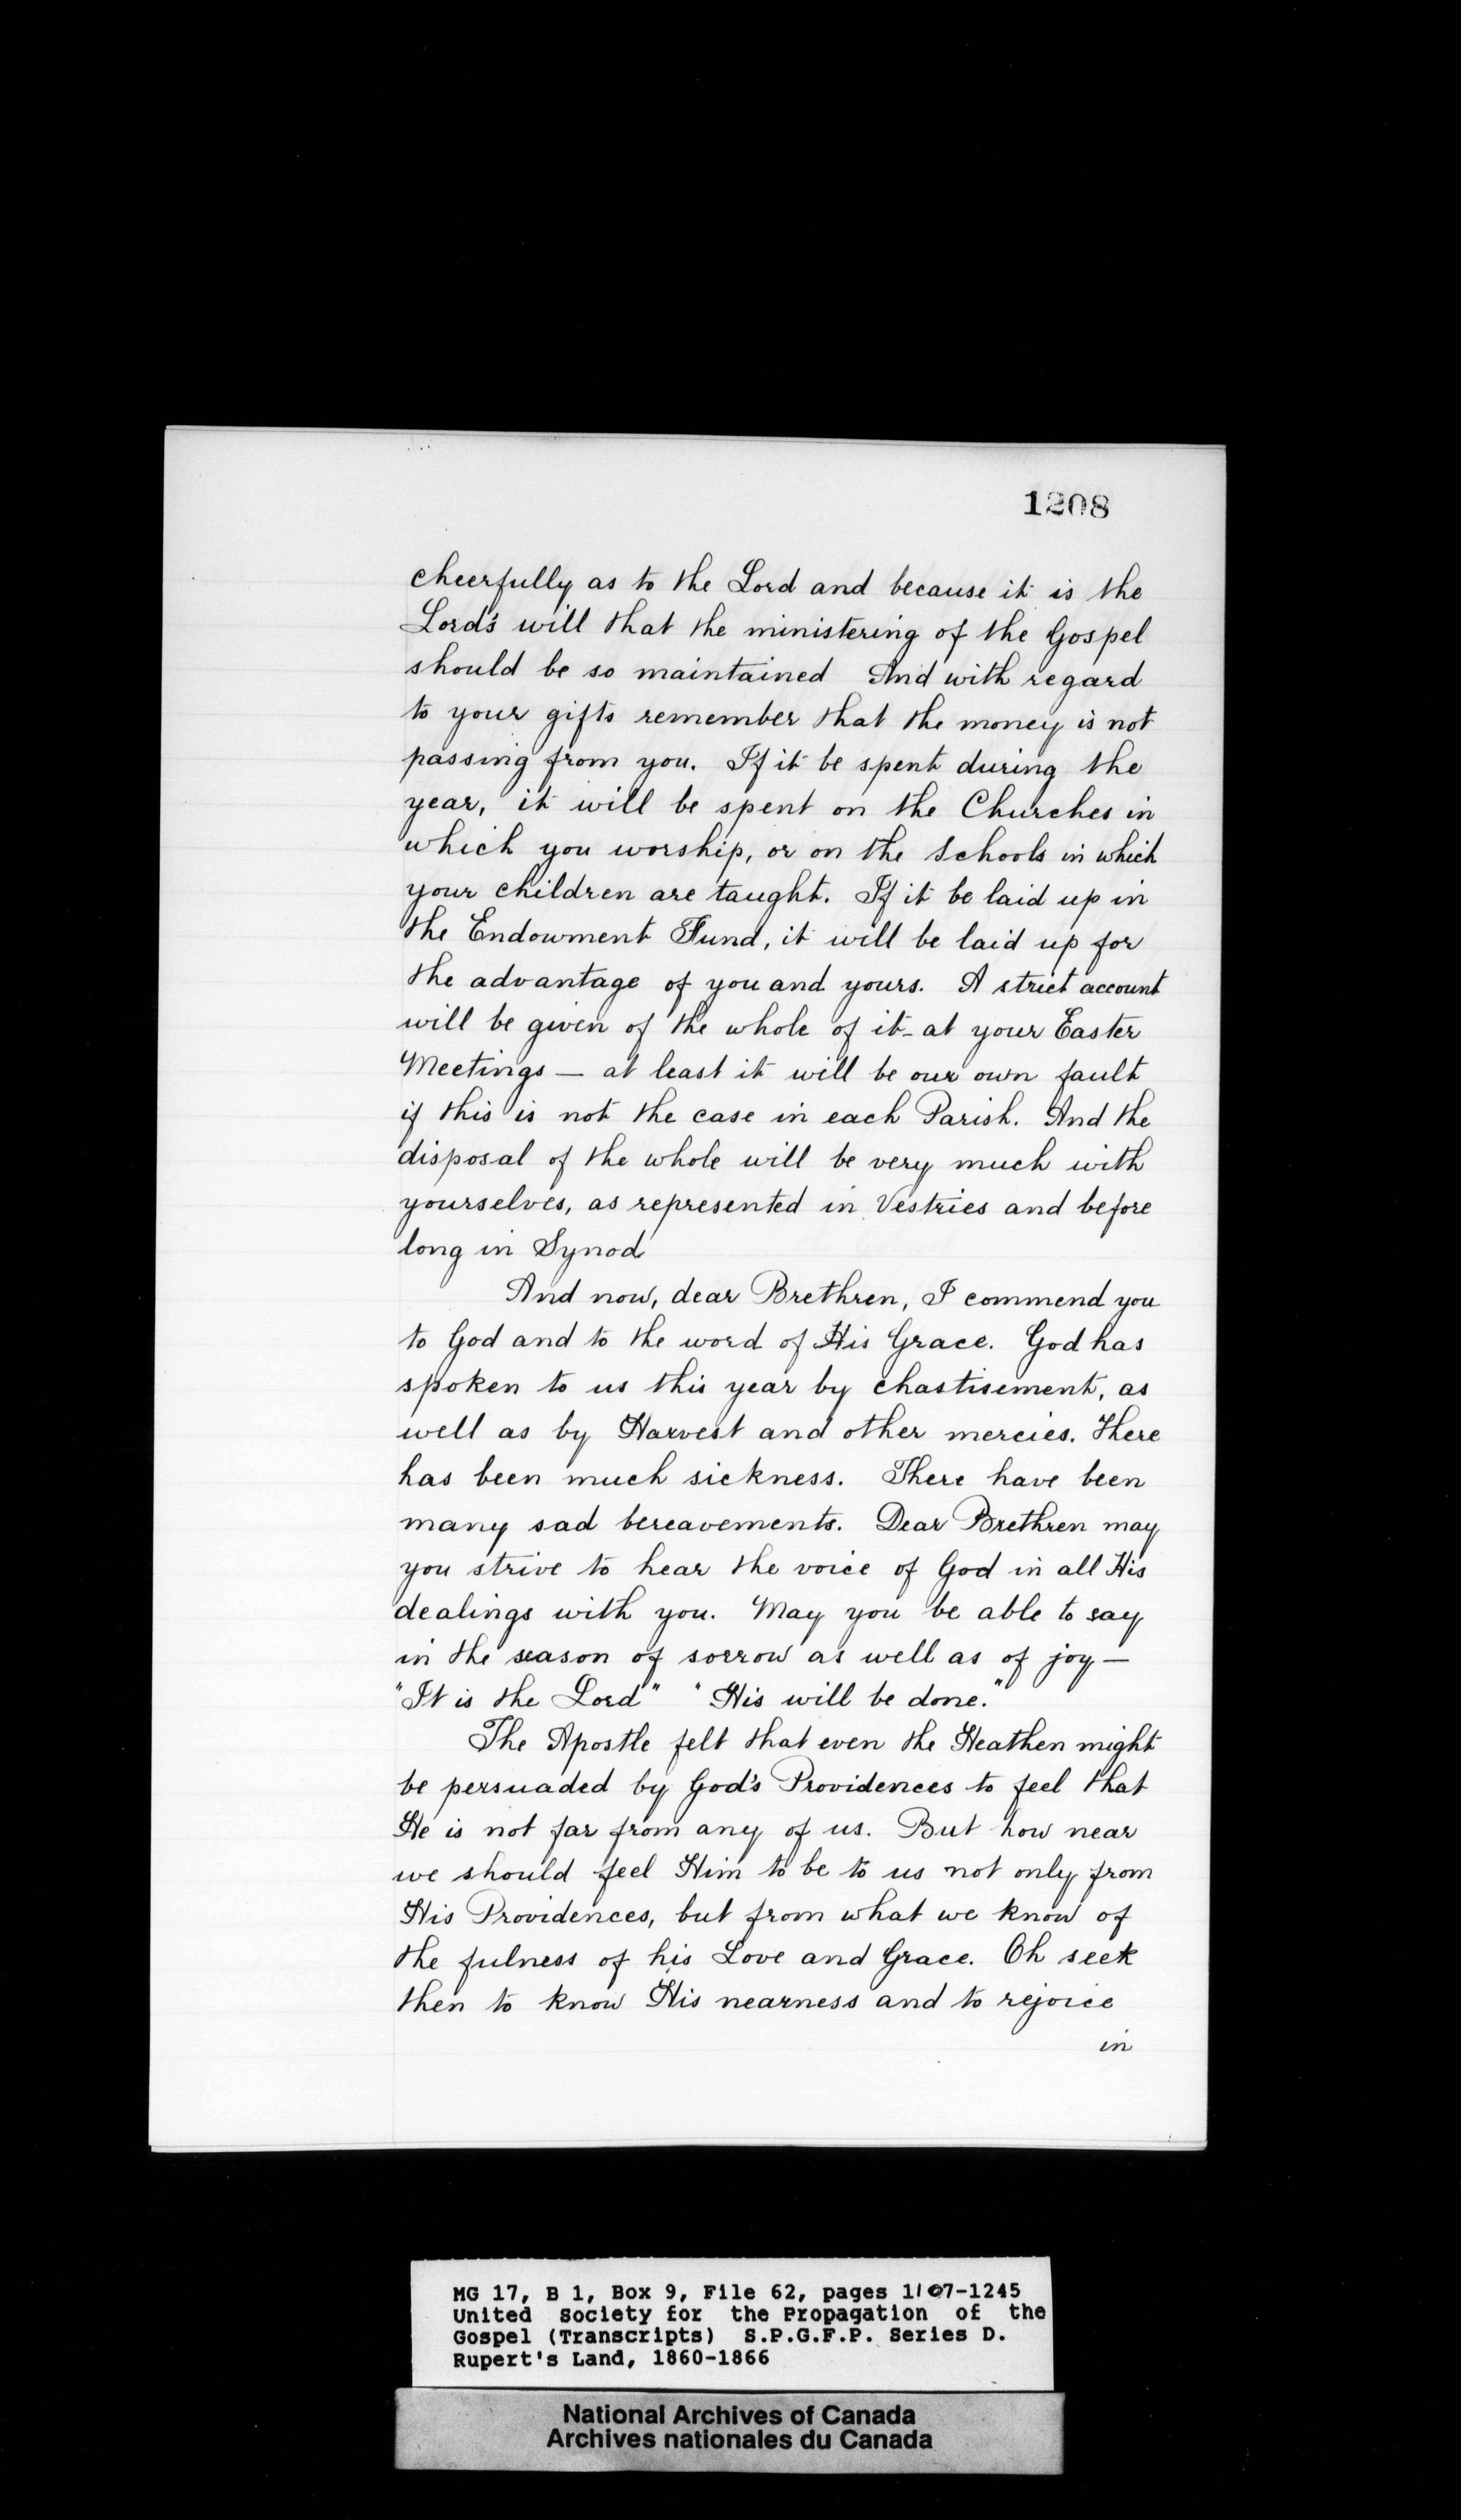 1208
cheerfully as to the Lord and because it is the
Lord's will that the ministering of the Gospel
should be so maintained And with regard
to your gifts remember that the money is not
passing from you. If it be spent during the
year, it will be spent on the Churches in
which you worship, or on the Schools in which
your children are taught. If it be laid up in
the Endowment Fund, it will be laid up for
the advantage of you and yours. A strict account
will be given of the whole of it - at your Easter
Meetings — at least it will be our own fault
if this is not the case in each Parish. And the
disposal of the whole will be very much with
yourselves, as represented in Vestries and before
long in Synod
And now, dear Brethren, I commend you
to God and to the word of His Grace. God has
spoken to us this year by chastisement, as
well as by Harvest and other mercies. There
has been much sickness. There have been
many sad bereavements. Dear Brethren may
you strive to hear the voice of God in all His
dealings with you. May you be able to say
in the season of sorrow as well as of joy —
"It is the Lord" "His will be done."
The Apostle felt that even the Heathen might
be persuaded by God's Providences to feel that
He is not far from any of us. But how near
we should feel Him to be to us not only from
His Providences, but from what we know of
the fulness of his Love and Grace. Oh seek
then to know His nearness and to rejoice
in
MG 17, B 1, Box 9, File 62, pages 1107-1245
United Society for the Propagation of the
Gospel (Transcripts) S.P.G.F.P. Series D.
Rupert's Land, 1860-1866
National Archives of Canada
Archives nationales du Canada